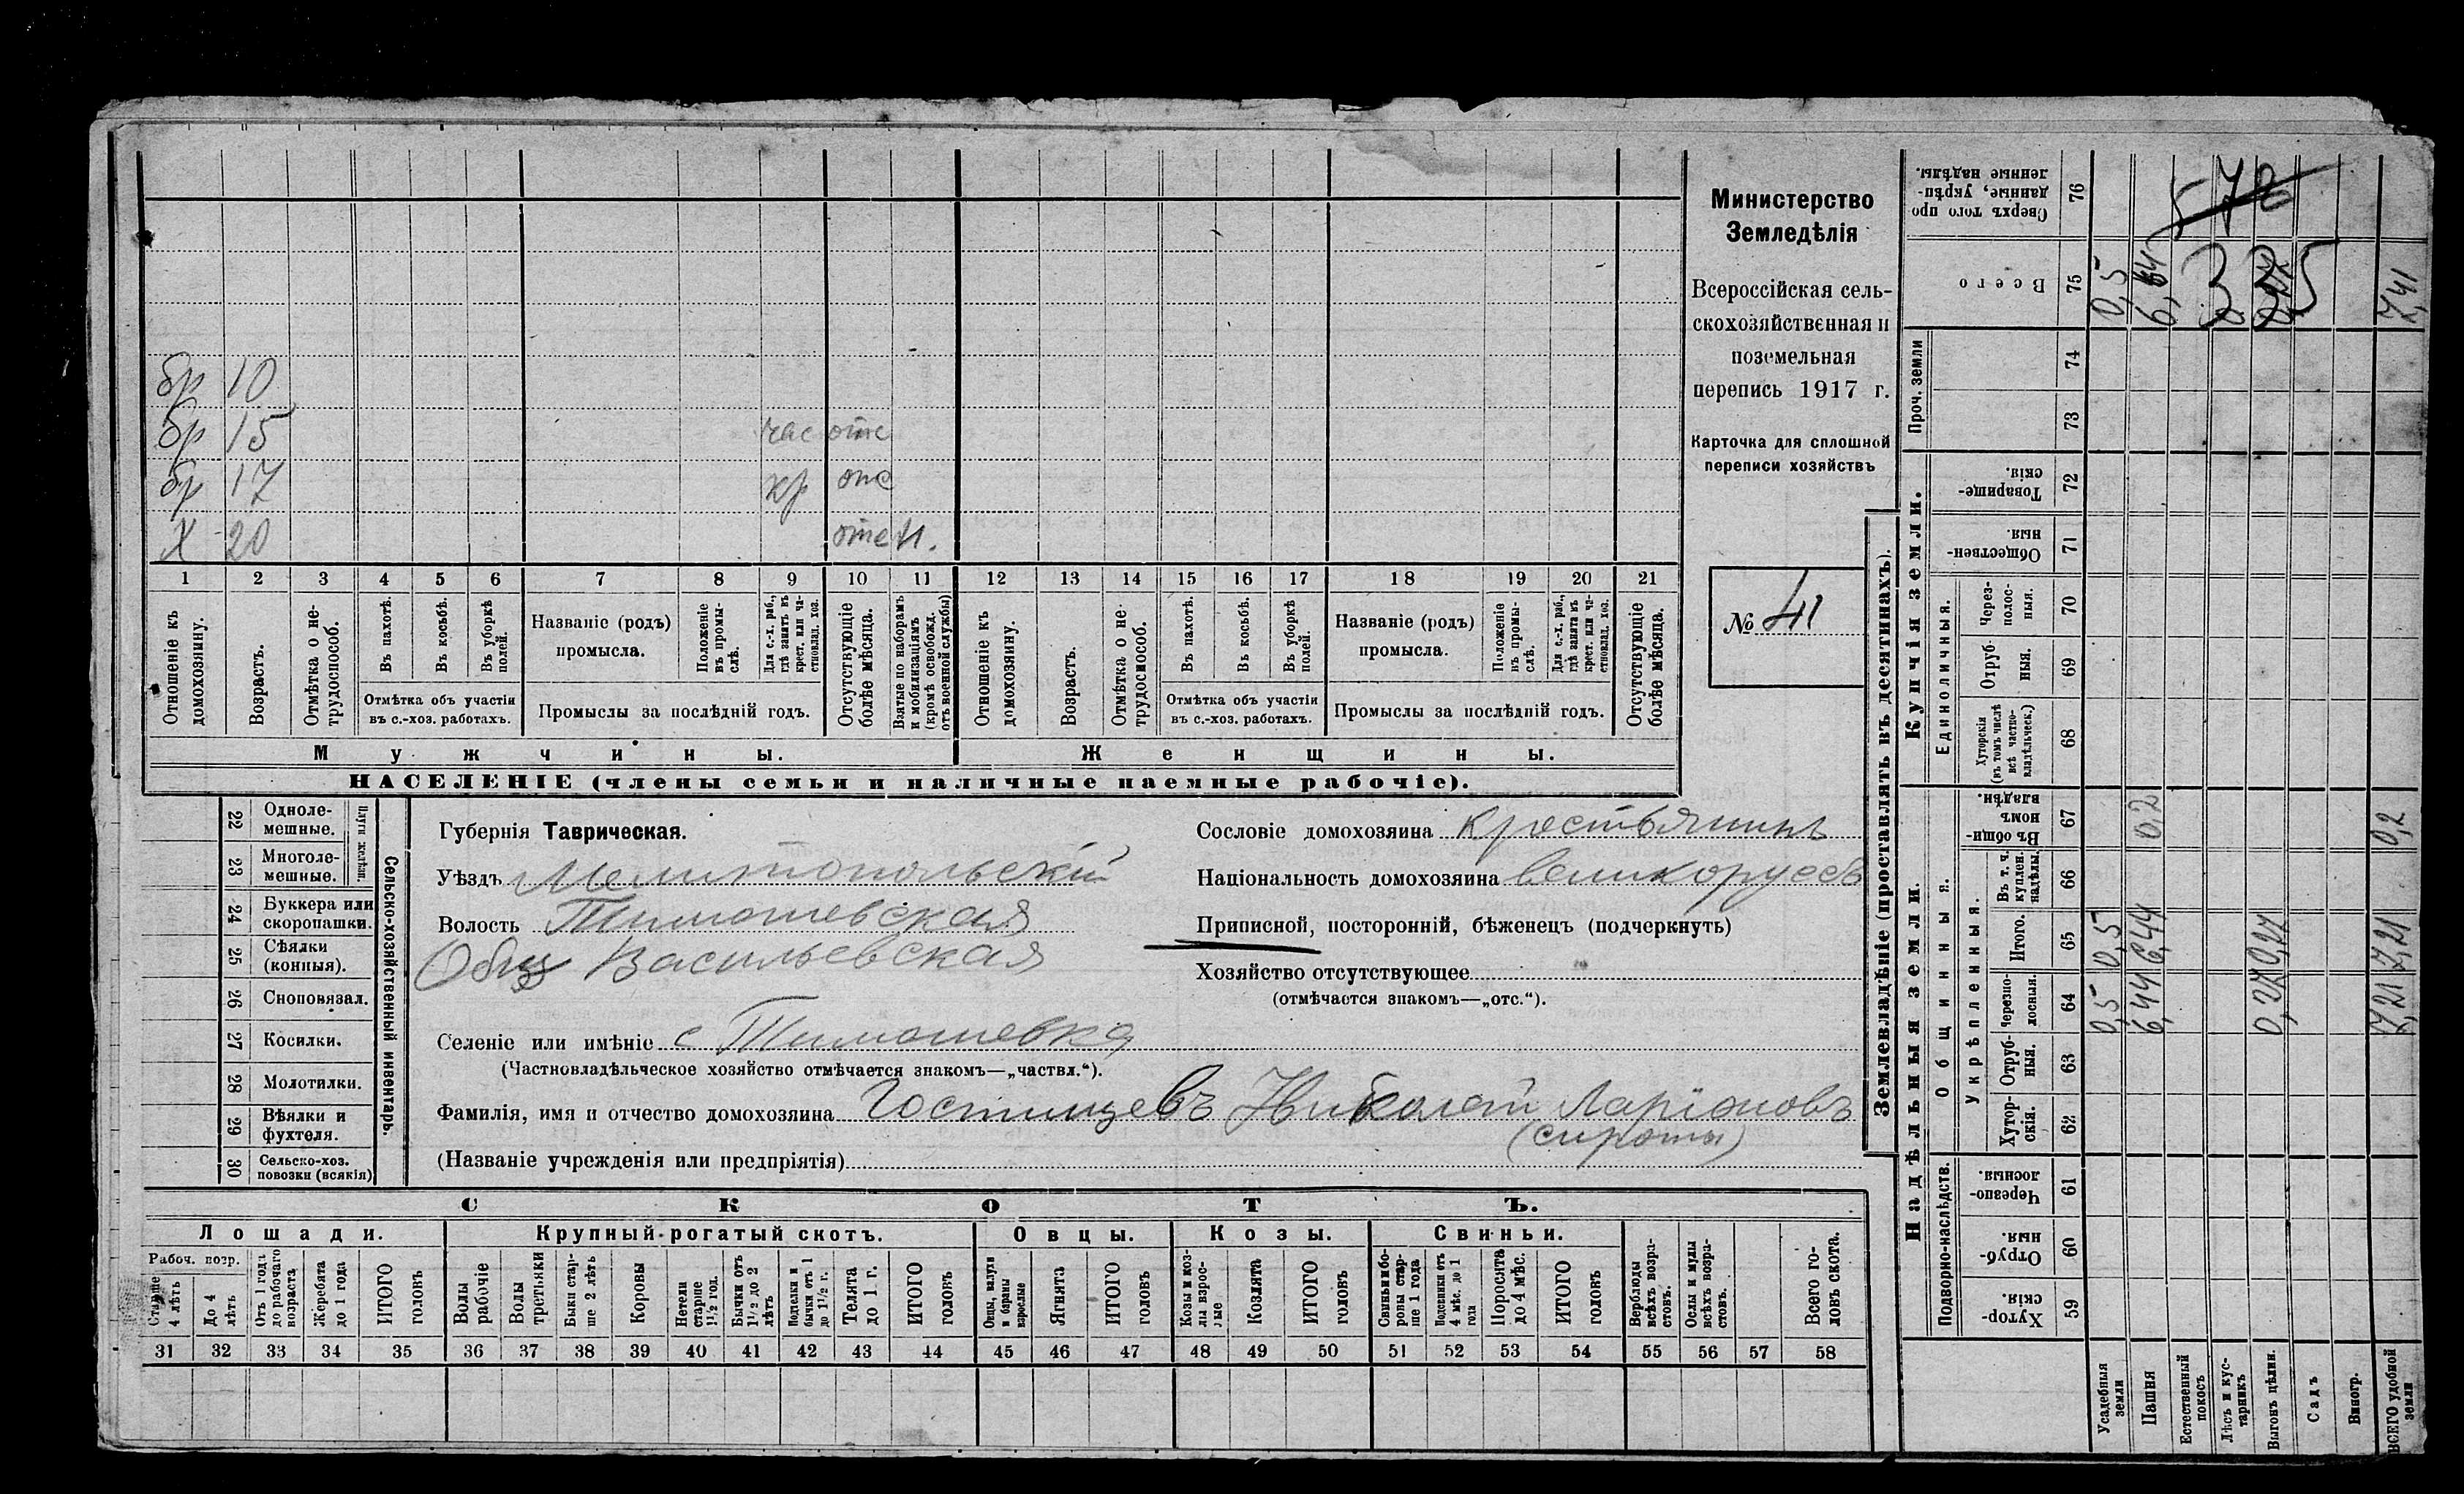 бр 10
бр 15 час отс
бр 17 кр отс
Х 20 отс
1 2 3 4 5 6 7 8 9 10 11 12 13 14 15 16 17 18 19 20 21
Отношеніе къ домохозяину.
Возрастъ.
Отмѣтка о нетрудоспособ.
Въ пахотѣ.
Въ косьбѣ.
Въ уборкѣ полей.
Отмѣтка объ участіи
въ с.-хоз. работахъ.
Названіе (родъ)
промысла.
Положеніе въ промыслѣ.
Для с.-х. раб., гдѣ занятъ въ крест. или частновлад. хоз.
Промыслы за послѣдній годъ.
Отсутствующіе болѣе мѣсяца.
Взятые по наборамъ и мобилизаціямъ (кромѣ освобожд. отъ военной службы)
Отношеніе къ домохозяину.
Возрастъ.
Отмѣтка о нетрудоспособ.
Въ пахотѣ.
Въ косьбѣ.
Въ уборкѣ полей.
Отмѣтка объ участіи
въ с.-хоз. работахъ.
Названіе (родъ)
промысла.
Положеніе въ промыслѣ.
Для с.-х. раб., гдѣ занята въ крест. или частновлад. хоз.
Промыслы за послѣдній годъ.
Отсутствующіе болѣе мѣсяца.
Мужчины.
Женщины.
НАСЕЛЕНІЕ (члены семьи и наличные наемные рабочіе).
Министерство
Земледѣлія
Всероссійская сель-
скохозяйственная и
поземельная
перепись 1917 г.
Карточка для сплошной
переписи хозяйствъ
№ 41
22 Одноле-
мешные.
23 Многоле-
мешные.
Плуги желѣзн.
24 Буккера или
скоропашки.
25 Сѣялки
(конныя).
26 Сноповязал.
27 Косилки.
28 Молотилки.
29 Вѣялки и
фухтеля.
30 Сельско-хоз.
повозки (всякія)
Сельско-хозяйственный инвентарь.
Губернія Таврическая.
Уѣздъ Мелитопольскій
Волость Тимошевская
Общ Васильевская
Селеніе или имѣніе с Тимошевка
(Частновладѣльческое хозяйство отмѣчается знакомъ—„частвл.“).
Фамилія, имя и отчество домохозяина Гостищевъ Николай Ларіоновъ
(сироты)
(Названіе учрежденія или предпріятія)
Сословіе домохозяина крестьянинъ
Національность домохозяина великоруссъ
Приписной, посторонній, бѣженецъ (подчеркнуть)
Хозяйство отсутствующее
(отмѣчается знакомъ—„отс.“).
СКОТЪ.
Лошади. Крупный рогатый скотъ. Овцы. Козы. Свиньи.
Рабоч. возр.
Старше 4 лѣтъ
До 4 лѣтъ
Отъ 1 года до рабочаго возраста
Жеребята до 1 года
ИТОГО головъ
Волы рабочіе
Волы третьяки
Быки старше 2 лѣтъ
Коровы
Нетели старше 1½ год.
Бычки отъ 1½ до 2 лѣтъ
Подтелки и бычки отъ 1 до 1½ г.
Телята до 1 г.
ИТОГО головъ
Овцы, валухи и бараны взрослые
Ягнята
ИТОГО головъ
Козы и козлы взрослые
Козлята
ИТОГО головъ
Свиньи и боровы старше 1 года
Подсвинки отъ 4 мѣс. до 1 года
Поросята до 4 мѣс.
ИТОГО головъ
Верблюды всѣхъ возрастовъ.
Ослы и мулы всѣхъ возрастовъ.
Всего головъ скота.
31 32 33 34 35 36 37 38 39 40 41 42 43 44 45 46 47 48 49 50 51 52 53 54 55 56 57 58
Землевладѣніе (проставлять въ десятинахъ).
Надѣльныя земли.
Купчія земли.
Подворно-наслѣдств.
Общинныя.
Укрѣпленныя.
Единоличныя.
Проч. земли
Хутор-
скія. 59
Отруб-
ныя. 60
Черезпо-
лосныя. 61
Хутор-
скія. 62
Отруб-
ныя. 63
Черезпо-
лосныя. 64
Итого. 65
Въ т. ч. куплен. надѣлы. 66
Въ общи-
номъ
владѣн. 67
Хуторскія (въ томъ числѣ всѣ частно-владѣльческ.) 68
Отруб-
ныя. 69
Через-
полос-
ныя. 70
Обществен-
ныя. 71
Товарище-
скія. 72
73
74
Всего 75
Сверхъ того про
данные, укрѣп-
ленные надѣлы. 76
Усадебныя земли 0,5 0,5 0,5
Пашня 6,44 6,44 0,2 6,64
Естественный покосъ
Лѣсъ и кустарникъ
Выгонъ цѣлин. 0,27 0,27
Садъ
Виногр.
ВСЕГО удобной земли 7,21 7,21 0,2 7,41
572
335